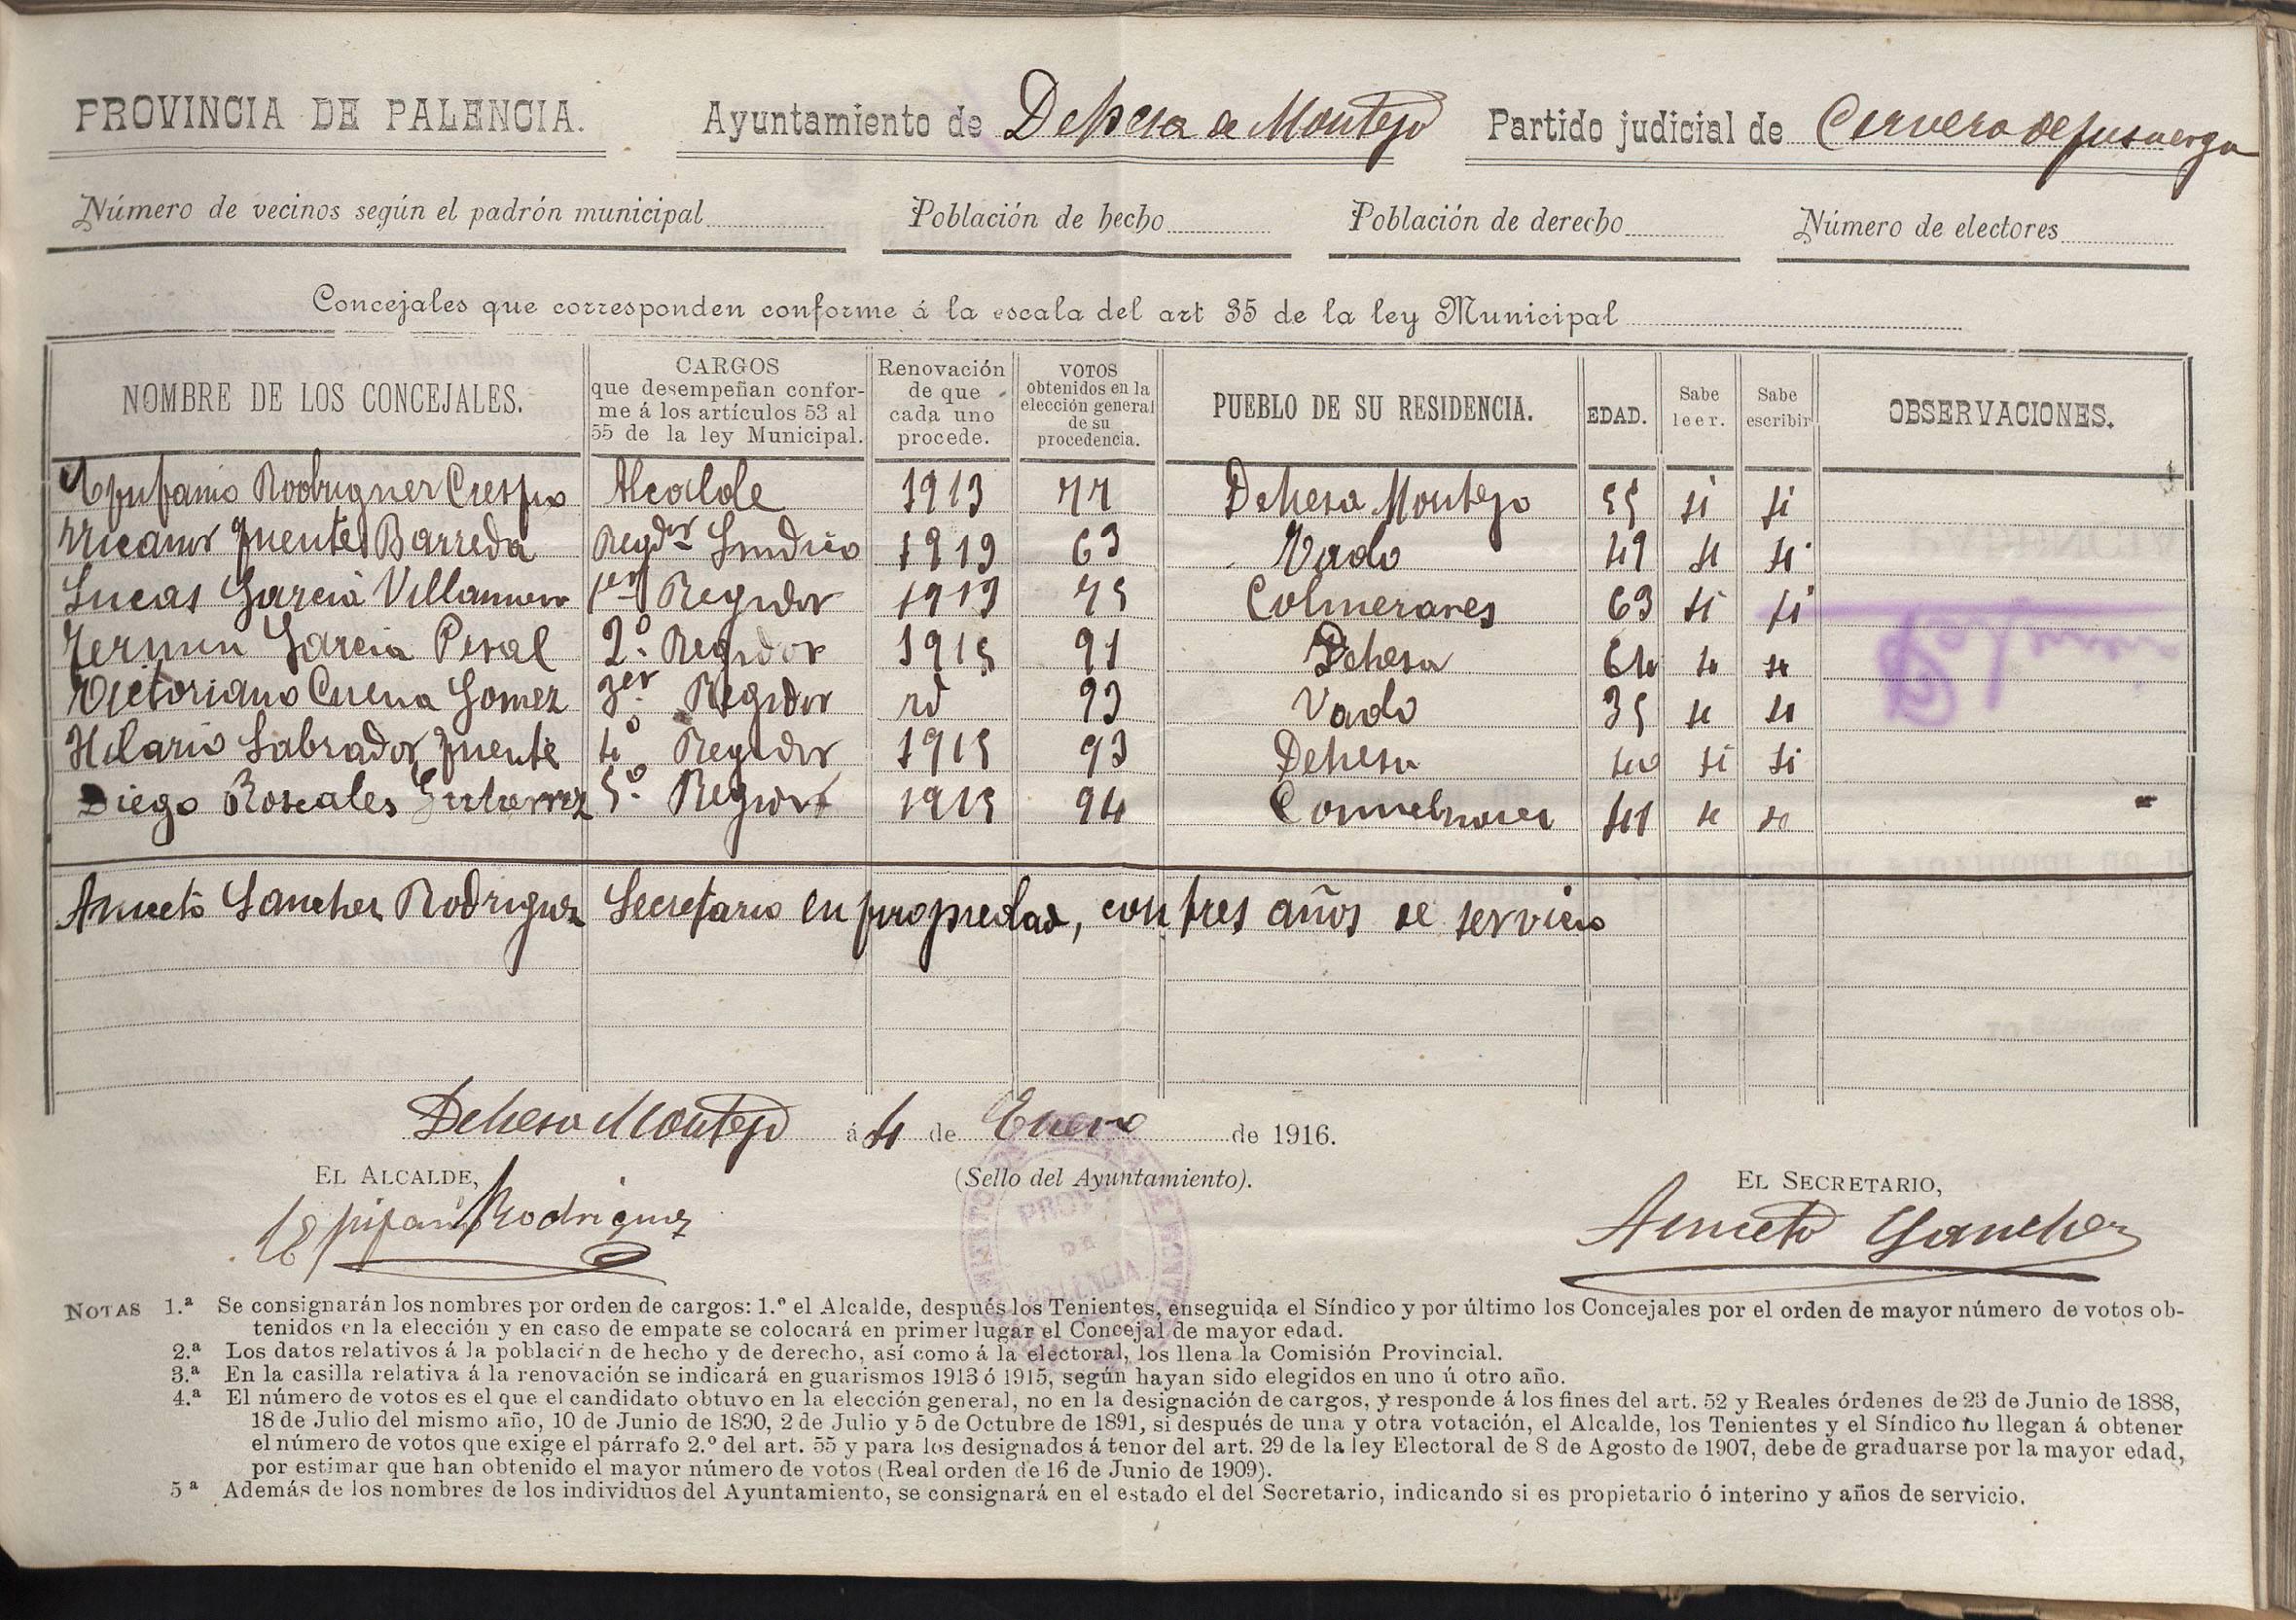 PROVINCIA DE PALENCIA. Ayuntamiento de Dehesa de Montejo Partido judicial de Cervera de pisuerga
Número de vecinos según el padrón municipal Población de hecho Población de derecho Número de electores
Concejales que corresponden conforme á la escala del art 35 de la ley Municipal
NOMBRE DE LOS CONCEJALES. CARGOS que desempeñan conforme á los artículos 53 al 55 de la ley Municipal. Renovación de que cada uno procede. VOTOS obtenidos en la elección general de su procedencia. PUEBLO DE SU RESIDENCIA. EDAD. Sabe leer. Sabe escribir OBSERVACIONES.
Epifanio Rodriguez Crespo Alcalde 1913 77 Dehesa Montejo 55 si si
Nicanor fuente Barreda Regdor Sindico 1913 63 Vado 49 si si
Lucas Garcia 1er Regidor 1913 75 Colmenares 63 si si
Fermin Garcia Peral 2º Regidor 1915 91 Dehesa 64 si si
Victoriano Cuena Gomez 3er Regidor id 93 Vado 35 si si
Hilario Labrador fuente 4º Regidor 1915 93 Dehesa 40 si si
Diego Roscales Gutierrez 5º Regidor 1915 94 Colmenares 41 si
Aniceto Sanchez Rodriguez Secretario en propiedad, con tres años de servicio
Dehesa Montejo á 4 de Enero de 1916.
EL ALCALDE, (Sello del Ayuntamiento). EL SECRETARIO,
Epifanio Rodriguez Aniceto Sanchez
PROVª
DE
PALENCIA
NOTAS 1.ª Se consignarán los nombres por orden de cargos: 1.º el Alcalde, después los Tenientes, enseguida el Síndico y por último los Concejales por el orden de mayor número de votos ob-
tenidos en la elección y en caso de empate se colocará en primer lugar el Concejal de mayor edad.
2.ª Los datos relativos á la población de hecho y de derecho, así como á la electoral, los llena la Comisión Provincial.
3.ª En la casilla relativa á la renovación se indicará en guarismos 1913 ó 1915, según hayan sido elegidos en uno ú otro año.
4.ª El número de votos es el que el candidato obtuvo en la elección general, no en la designación de cargos, y responde á los fines del art. 52 y Reales órdenes de 23 de Junio de 1888,
18 de Julio del mismo año, 10 de Junio de 1890, 2 de Julio y 5 de Octubre de 1891, si después de una y otra votación, el Alcalde, los Tenientes y el Síndico no llegan á obtener
el número de votos que exige el párrafo 2.º del art. 55 y para los designados á tenor del art. 29 de la ley Electoral de 8 de Agosto de 1907, debe de graduarse por la mayor edad,
por estimar que han obtenido el mayor número de votos (Real orden de 16 de Junio de 1909).
5ª Además de los nombres de los individuos del Ayuntamiento, se consignará en el estado el del Secretario, indicando si es propietario ó interino y años de servicio.